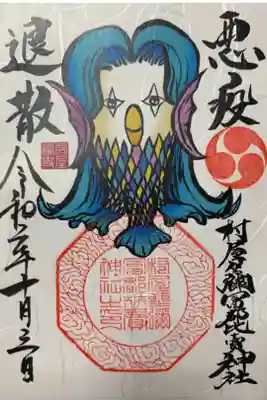 悪疫
退散
村屋坐彌冨都比賣神社
令和二年十月三日